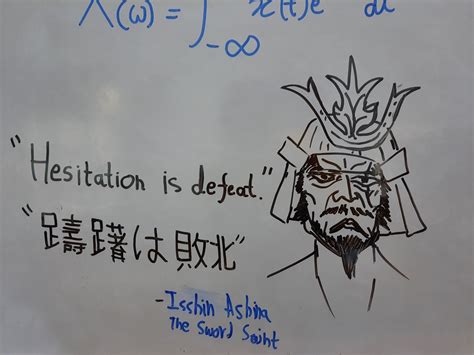 X(ω) = ∫_{-∞} x(t)e dt
"Hesitation is defeat."
"躊躇は敗北"
-Isshin Ashina
The Sword Saint